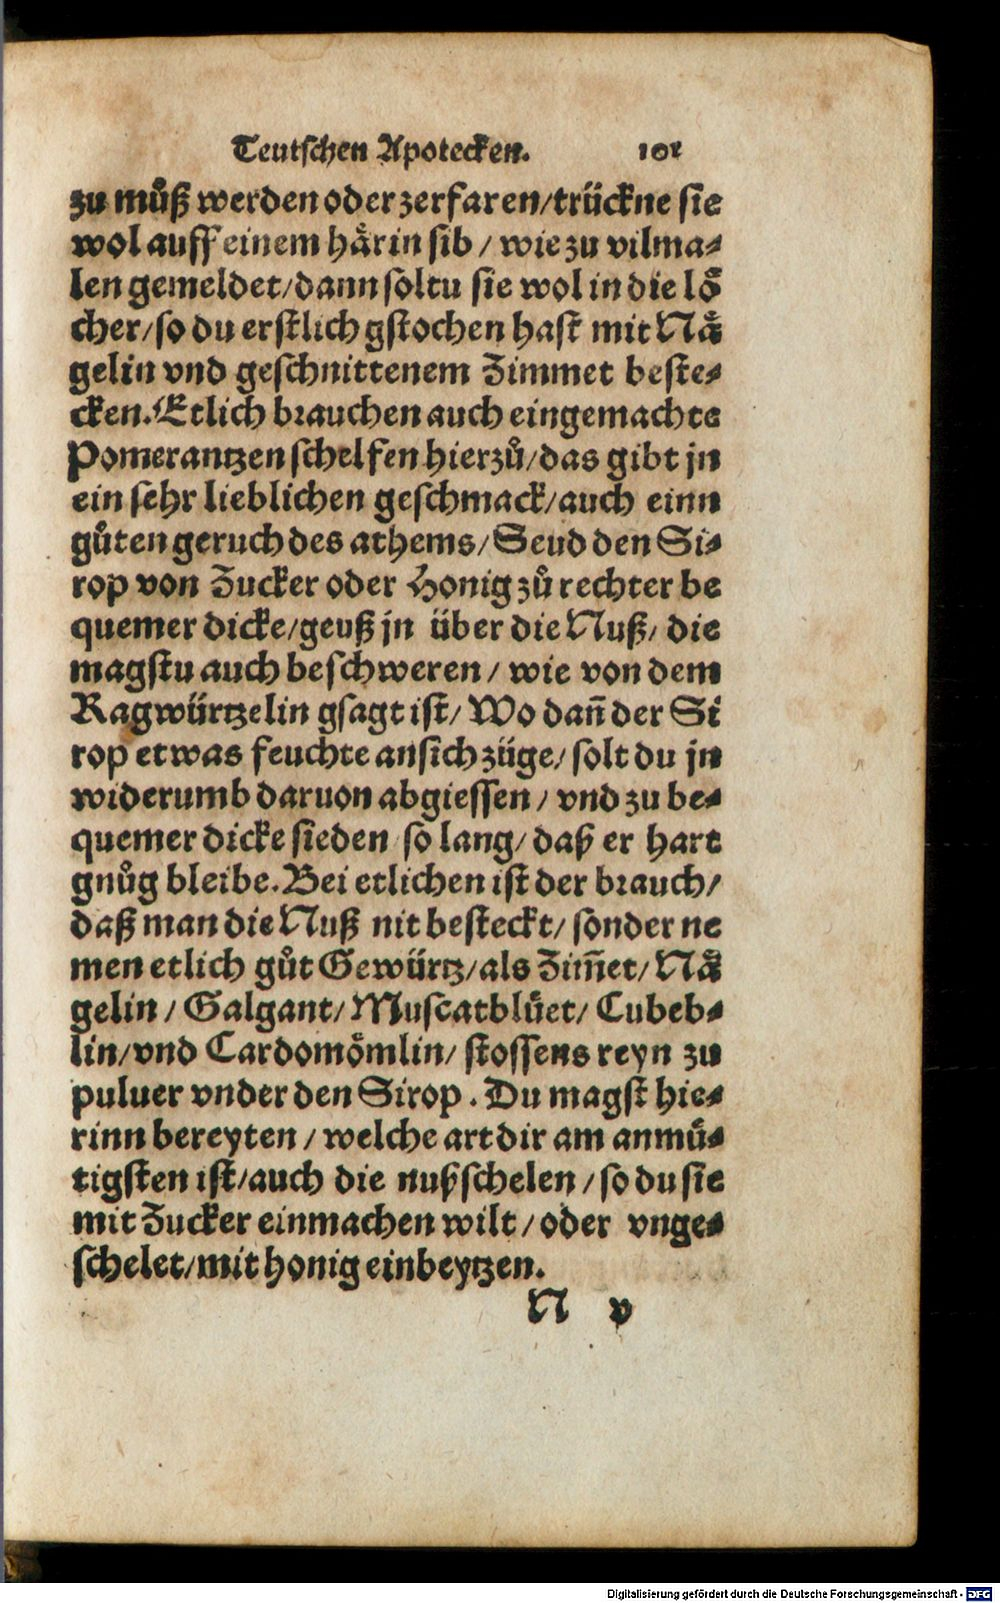 Teutschen Apotecken. 101
zu muͦß werden oder zerfaren/trückne sie
wol auff einem haͤrin sib / wie zu vilma⸗
len gemeldet/dann soltu sie wol in die loͤ
cher/so du erstlich gstochen hast mit Naͤ
gelin vnd geschnittenem Zimmet beste⸗
cken. Etlich brauchen auch eingemachte
Pomerantzen schelfen hierzuͦ/das gibt jn
ein sehr lieblichen geschmack/auch einn
guͦten geruch des athems/Seud den Si⸗
rop von Zucker oder Honig zuͦ rechter be
quemer dicke/geuß jn über die Nuß/ die
magstu auch beschweren/ wie von dem
Ragwürtzelin gsagt ist/ Wo dañ der Si
rop etwas feuchte an sich züge/ solt du jn
widerumb daruon abgiessen / vnd zu be⸗
quemer dicke sieden so lang/ daß er hart
gnuͦg bleibe. Bei etlichen ist der brauch/
daß man die Nuß nit besteckt/ sonder ne
men etlich guͦt Gewürtz/als Zim̃et/ Naͤ
gelin / Galgant/ Muscatbluͤet/ Cubeb⸗
lin/vnd Cardomoͤmlin/ stossens reyn zu
puluer vnder den Sirop . Du magst hie⸗
rinn bereyten / welche art dir am anmuͤ⸗
tigsten ist/auch die nußschelen / so du sie
mit Zucker einmachen wilt / oder vnge⸗
schelet/mit honig einbeytzen.
N v
Digitalisierung gefördert durch die Deutsche Forschungsgemeinschaft - DFG